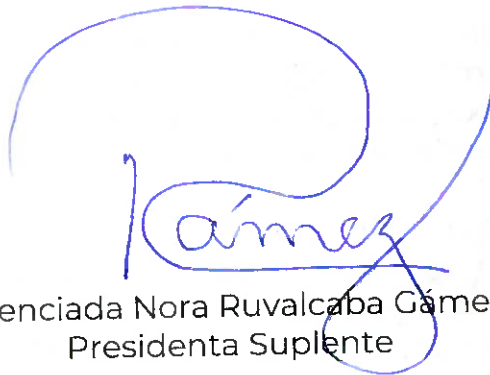 enciada Nora Ruvalcaba Gáme
Presidenta Suplente